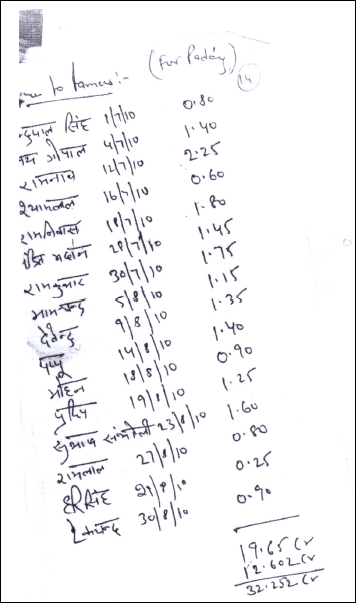 to farmers:- (For Paddy)
14
सिंह 1/7/10 0.80
गोपाल 4/7/10 1.40
रामनाथ 12/7/10 2.25
श्यामलाल 16/7/10 0.60
रामनिवास 18/7/10 1.80
28/7/10 1.45
रामकुमार 30/7/10 1.75
मामचन्द 5/8/10 1.15
देवेन्द्र 9/8/10 1.35
पप्पू 14/8/10 1.40
18/8/10 0.90
19/8/10 1.25
सुभाष 23/8/10 1.60
रामलाल 27/8/10 0.80
हरि सिंह 29/8/10 0.25
30/8/10 0.90
19.65 Cr
12.602 Cr
32.252 Cr